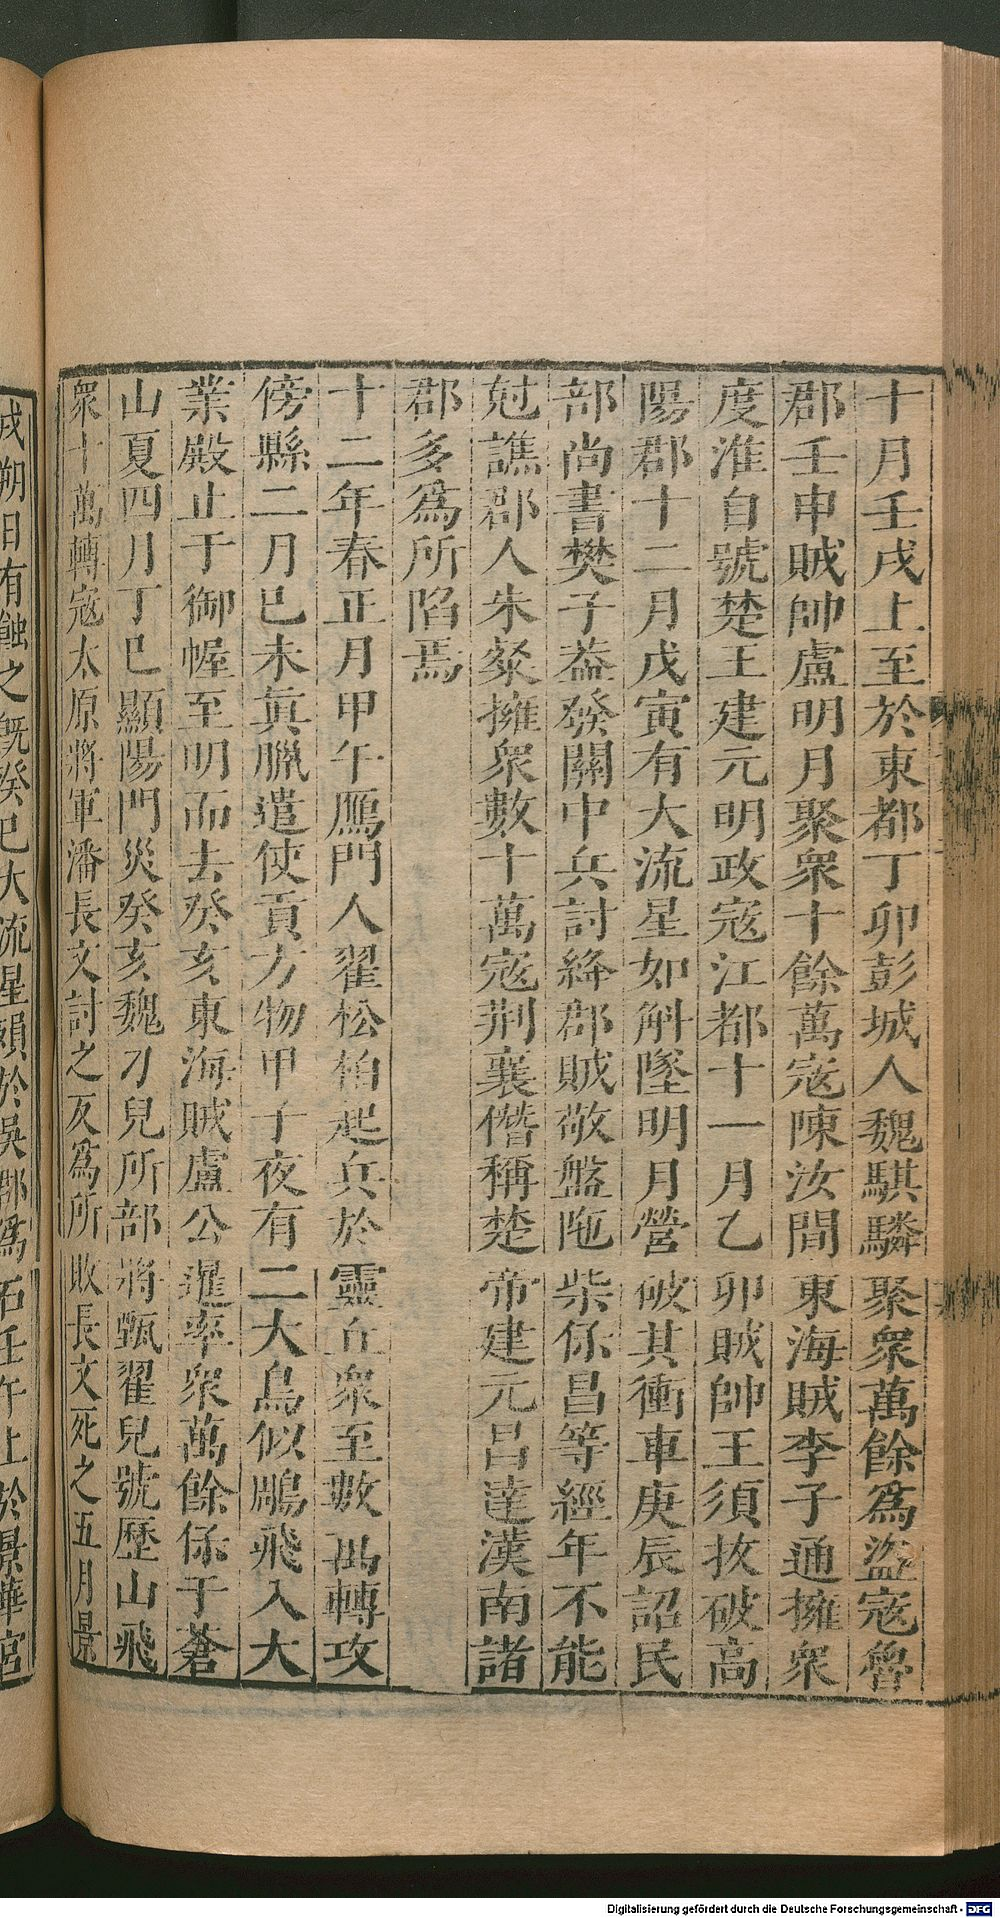 十月壬戌上至於東都丁卯彭城人魏騏驎聚衆萬餘爲盜寇魯
郡壬申賊帥盧明月聚衆十餘萬寇陳汝間東海賊李子通擁衆
度淮自號楚王建元明政寇江都十一月乙卯賊帥王須拔破高
陽郡十二月戊寅有大流星如斛墜明月營破其衝車庚辰詔民
部尚書樊子蓋發關中兵討絳郡賊敬盤陁柴保昌等經年不能
尅譙郡人朱粲擁衆數十萬寇荆襄僭稱楚帝建元昌達漢南諸
郡多爲所陷焉
十二年春正月甲午鴈門人翟松柏起兵於靈丘衆至數萬轉攻
傍縣二月己未眞臘遣使貢方物甲子夜有二大鳥似鵰飛入大
業殿止于御幄至明而去癸亥東海賊盧公暹率衆萬餘保于蒼
山夏四月丁巳顯陽門災癸亥魏刁兒所部將甄翟兒號歷山飛
衆十萬轉寇太原將軍潘長文討之反爲所敗長文死之五月景
戌朔日有蝕之旣癸巳大流星隕於吳郡爲石壬午上於景華宮
Digitalisierung gefördert durch die Deutsche Forschungsgemeinschaft - DFG